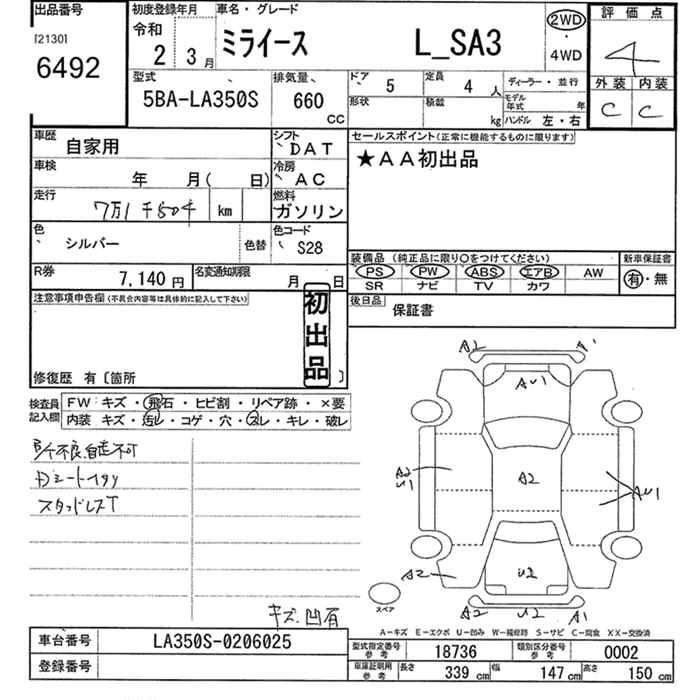 出品番号
[2130]
6492
初度登録年月
令和
2 3月
車名・グレード
ミライース L_SA3
2WD
・
4WD
評価点
4
外装 内装
C C
型式
5BA-LA350S
排気量
660
CC
ドア
5
定員
4人
形状
積載
kg
ディーラー・並行
モデル年式 年
ハンドル 左・右
車歴
自家用
シフト
DAT
車検
年 月( 日)
冷房
AC
走行
7万1千504 km
燃料
ガソリン
色
シルバー
色替
色コード
S28
R券
7,140円
名変通知期限
月 日
セールスポイント(正常に機能するものに限ります)
★AA初出品
装備品 (純正品に限り○をつけてください)
新車保証書
PS PW ABS エアB AW
SR ナビ TV カワ
有・無
後日品
保証書
注意事項申告欄(不具合内容等は具体的に記入して下さい)
初出品
修復歴 有〔箇所 〕
検査員
記入欄
FW キズ・飛石・ヒビ割・リペア跡・×要
内装 キズ・汚レ・コゲ・穴・スレ・キレ・破レ
自走不可
スタッドレスT
キズ、凹有
A2 A1
AU1
A2
U1
A2
AU1
A2
U2
A2 U2 A1
スペア
A―キズ E―エクボ U―凹み W―補修跡 S―サビ C―腐食 XX―交換済
車台番号
LA350S-0206025
登録番号
型式指定番号
参考
18736
類別区分番号
参考
0002
車庫証明用
参考
長さ
339 cm
幅
147 cm
高さ
150 cm